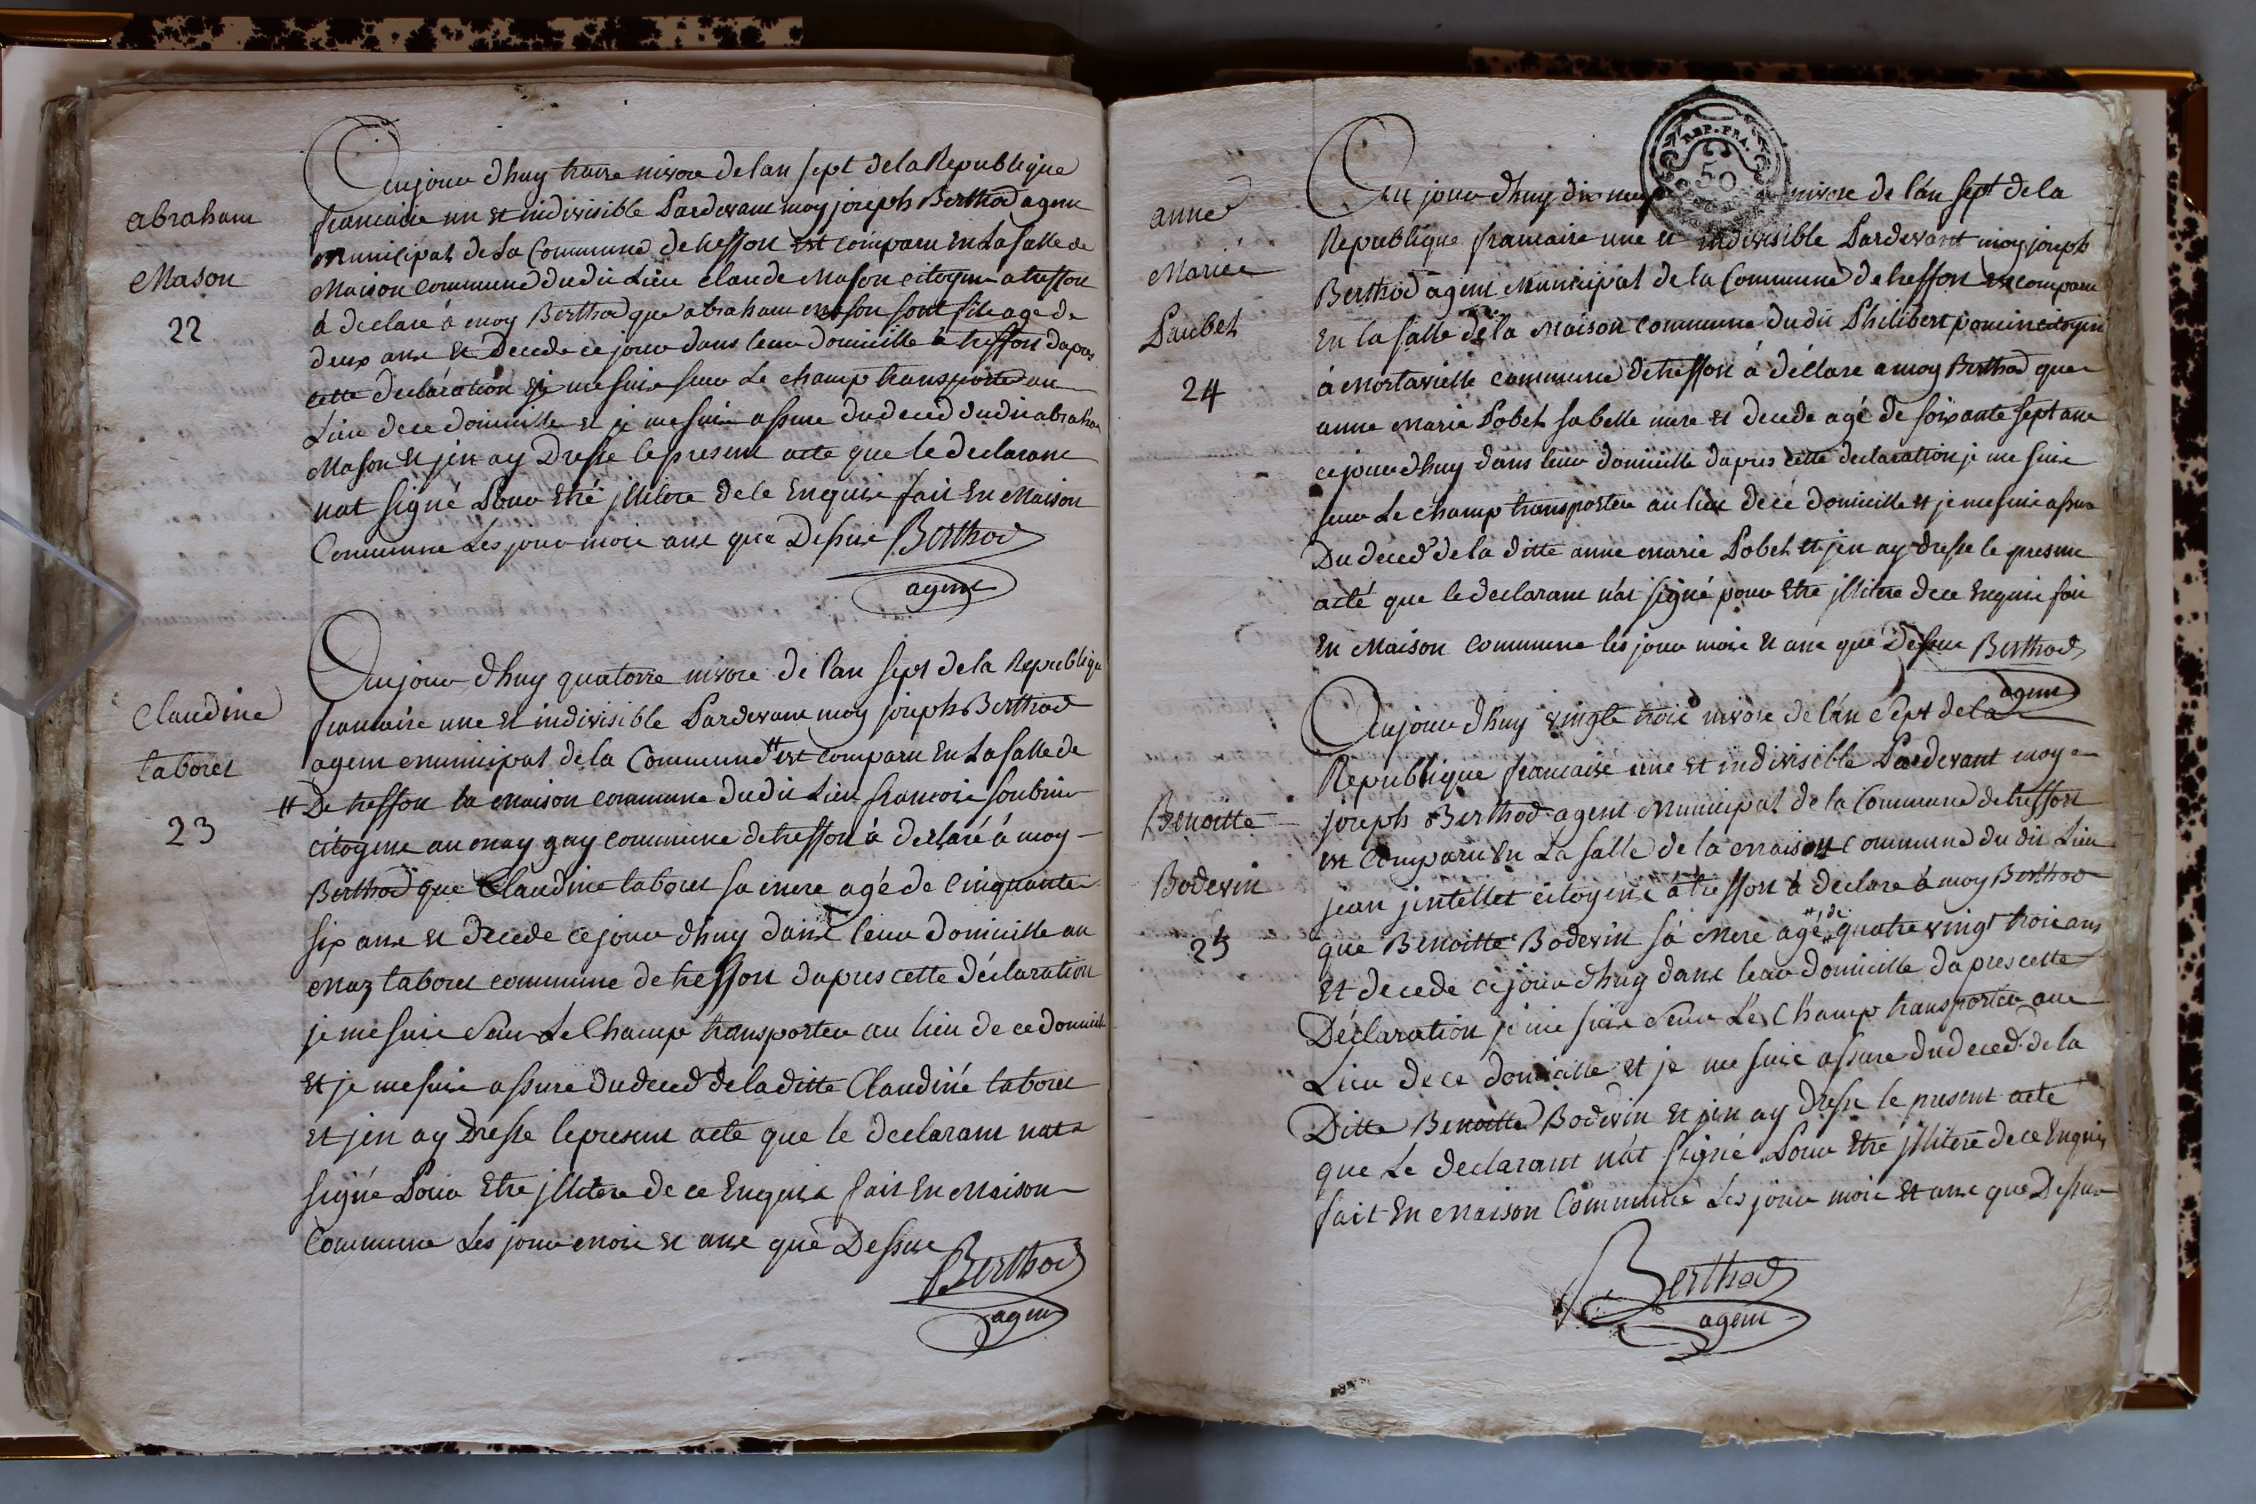 abraham
Mason
22
Aujour dhuy traise nivose de lan sept de la Republique
francaise un et indivisible Pardevant moy joseph Berthod agent
Municipal de La Commune de tresson est comparu En La Salle de
Maison commune dudit Lieu claude Mason citoyen a tresson
à declaré à moy Berthod que abraham mason sont fils age de
deux ans Et Decede ce jour dans leur domicille a tresson dapres
cette declaration je me suis sur Le champ transporte au
Lieu de ce domicille et je me suis assure du deced dudit abraham
Mason Et jen ay Dresse le present acte que le declarant
nat signé Pour Etré jllitere de le Enquis fait En Maison
Commune Les jour mois ans que Dessus Berthod
agent
Claudine
taboret
23
Aujour dhuy quatorze nivose de lan sept de la Republique
francaise une et indivisible Pardevant moy joseph Berthod
agent municipal de la Commune # est comparu En La Salle de
# De tresson la maison commune dudit Lieu francois soubrier
citoyens au may gay commune de tresson à declaré à moy
Berthod que Claudine taboret sa mere agé de Cinquante
six ans et decede ce jour dhuy dans leur domicille au
maz taboret commune de tresson dapres cette déclaration
je me suis Sur Le Champ transporter au lieu de ce domicille
Et je me suis assure du deced de la ditte Claudiné taboret
Et jen ay Dresse le present acte que le declarant nat
signé Pour Etre jllitere de ce Enquis fait En Maison
Commune Les jour mois et ans que Dessus
Berthod
agent
anne
Marie
Paubet
24
Au jour dhuy dix neuf nivose de lan sept de la
REP. FRA.
50
Republique francaise une et indivisible Pardevant moy joseph
Berthod agent Municipal de la Commune de tresson est comparu
En la salle de la Maison commune dudit Philibert pomin citoyen
à mortarielle commune de tresson à déclare a moy Berthod que
anne marie Pobet sa belle mere et decede agé de soixante sept ans
ce jour dhuy dans leur domicille dapres cette declaration je me suis
sur Le champ transporter au lieu de cé domicille et je me suis assure
Du deced de la ditte anne marie Pobet et jen ay dresse le present
acté que le declarant nat signé pour Etre jllitere de ce Enquis fait
En Maison commune les jour mois et ans que Dessus Berthod
agent
Benoitte
Bodevin
25
Aujour dhuy vingte trois nivose de lan Sept de la
Republique francaise une et indivisible Pardevant moy
joseph Berthod agent Municipal de la Commune de tresson
est Comparu En La salle de la maison commune du dit Lieu
jean jintellet citoyens à tresson à declare à moy Berthod
que Benoitte Bodevin sa mere agé # de quatre vingt trois ans
Et decede ce jour dhuy dans leur domicille dapres cette
Déclaration je me suis Sur Le Champ transporter au
Lieu de ce domicille et je me suis assure du deced de la
Ditte Benoitte Bodevin et jen ay dresse le present acte
que Le declarant nat signé Pour Etre jllitere de ce Enquis
fait En Maison Commune Les jour mois et ans que Dessus
Berthod
agent